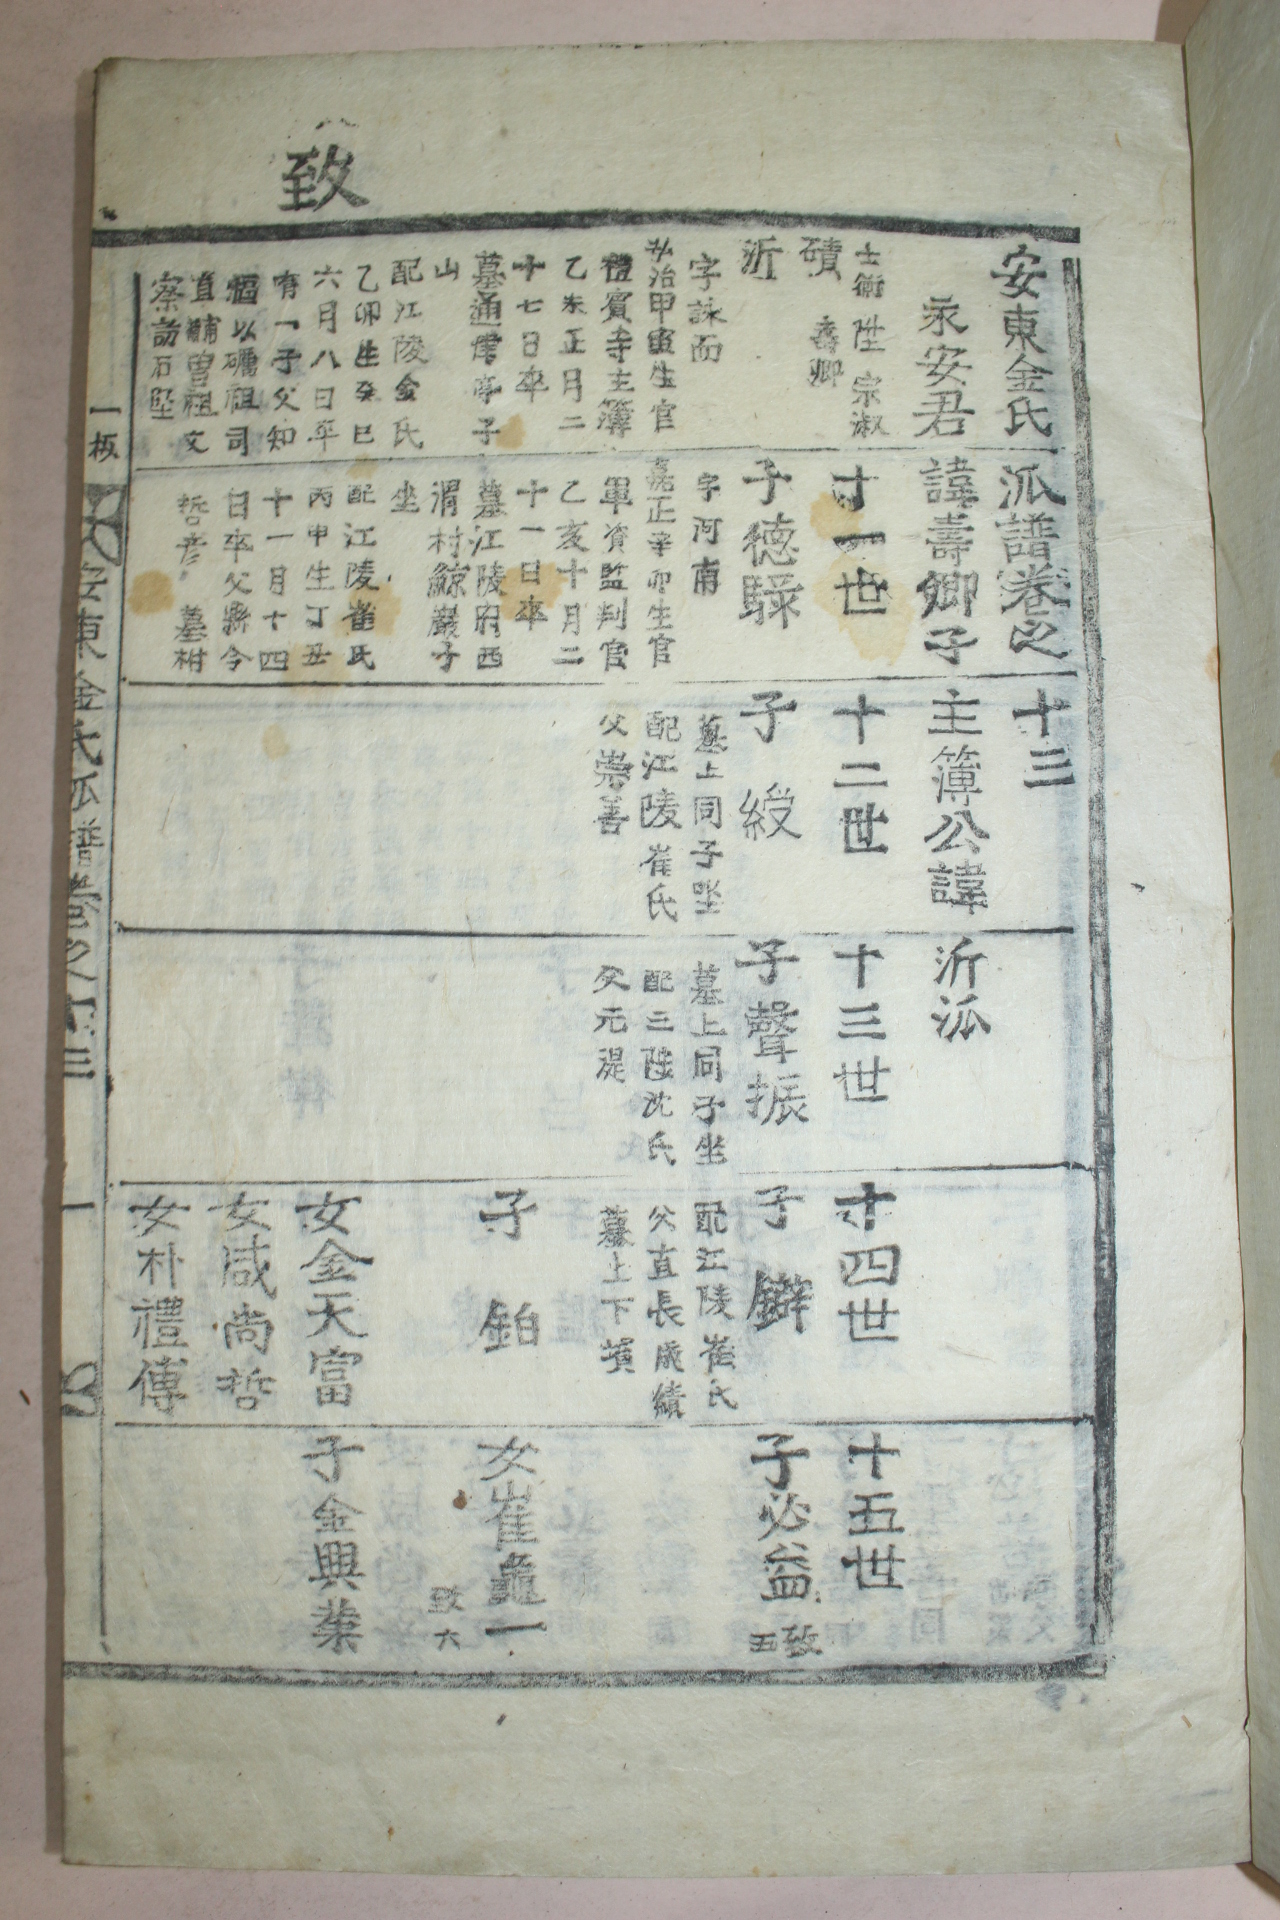 致
安東金氏派譜卷之十三
永安君諱壽卿子主簿公諱沂派
士衡陞宗淑
磧 壽卿
沂
字詠而
弘治甲寅生官
禮賓寺主簿
乙未正月二
十七日卒
墓通傑亭子
山
配江陵金氏
乙卯生癸巳
六月八日卒
有一子父知
慍以礪祖司
直 曾祖文
察訪石堅
十一世
子德騄
字河甫
嘉正辛卯生官
軍資監判官
乙亥十月二
十一日卒
墓江陵府西
渭村鯨巖子
坐
配江陵崔氏
丙申生丁丑
十一月十四
日卒父縣令
哲彦 墓柑
十二世
子 綬
墓上同子坐
配江陵崔氏
父崇善
十三世
子聲振
墓上同子坐
配三陟沈氏
父元混
十四世
子 鐴
配江陵崔氏
父直長展績
墓上下墳
子 鉑
女金天富
女咸尚哲
女朴禮傅
十五世
子必益 致五
女崔龜一 致六
子金興葉
一板
安東金氏派譜卷之十三 一